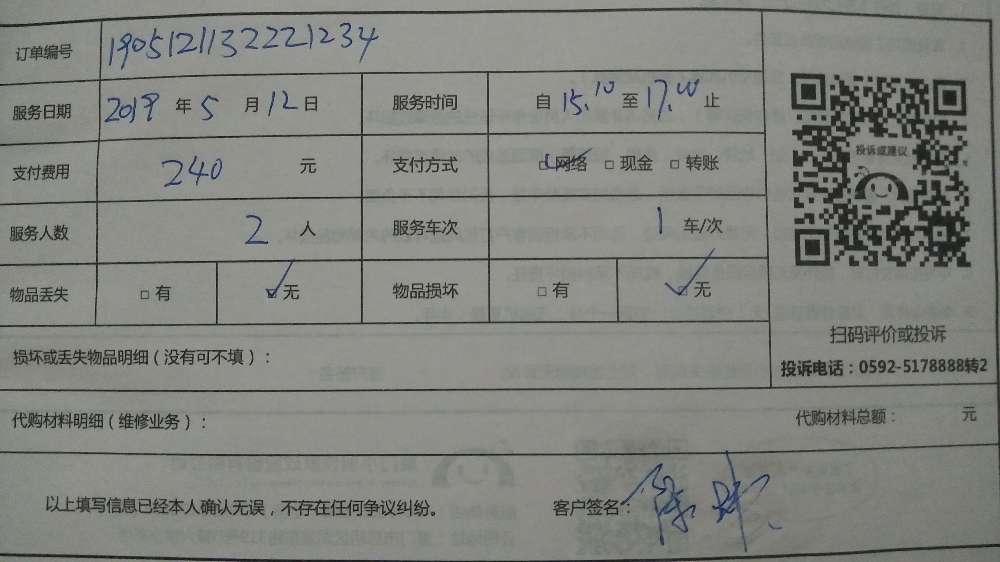 订单编号 1905121132221234
服务日期 2019 年 5 月 12 日 服务时间 自 15.10 至 17.00 止
支付费用 240 元 支付方式 □网络 □现金 □转账
服务人数 2 人 服务车次 1 车/次
物品丢失 □有 ☑无 物品损坏 □有 ☑无
投诉或建议
扫码评价或投诉
投诉电话：0592-5178888转2
损坏或丢失物品明细（没有可不填）：
代购材料明细（维修业务）： 代购材料总额： 元
以上填写信息已经本人确认无误，不存在任何争议纠纷。 客户签名：